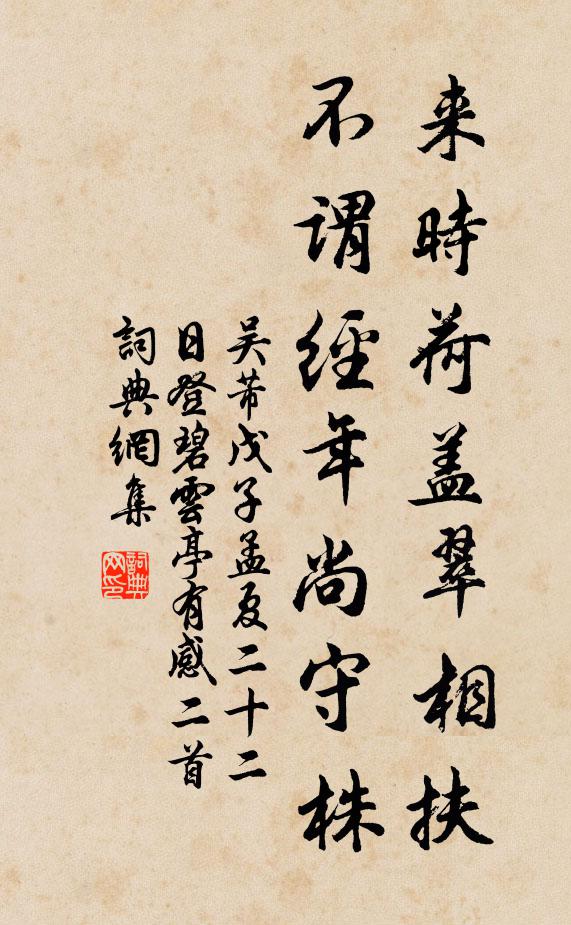 来時荷盖翠相扶
不謂經年尚守株
吴芾戊子孟夏二十二
日登碧雲亭有感二首
詞典網集
詞典网印